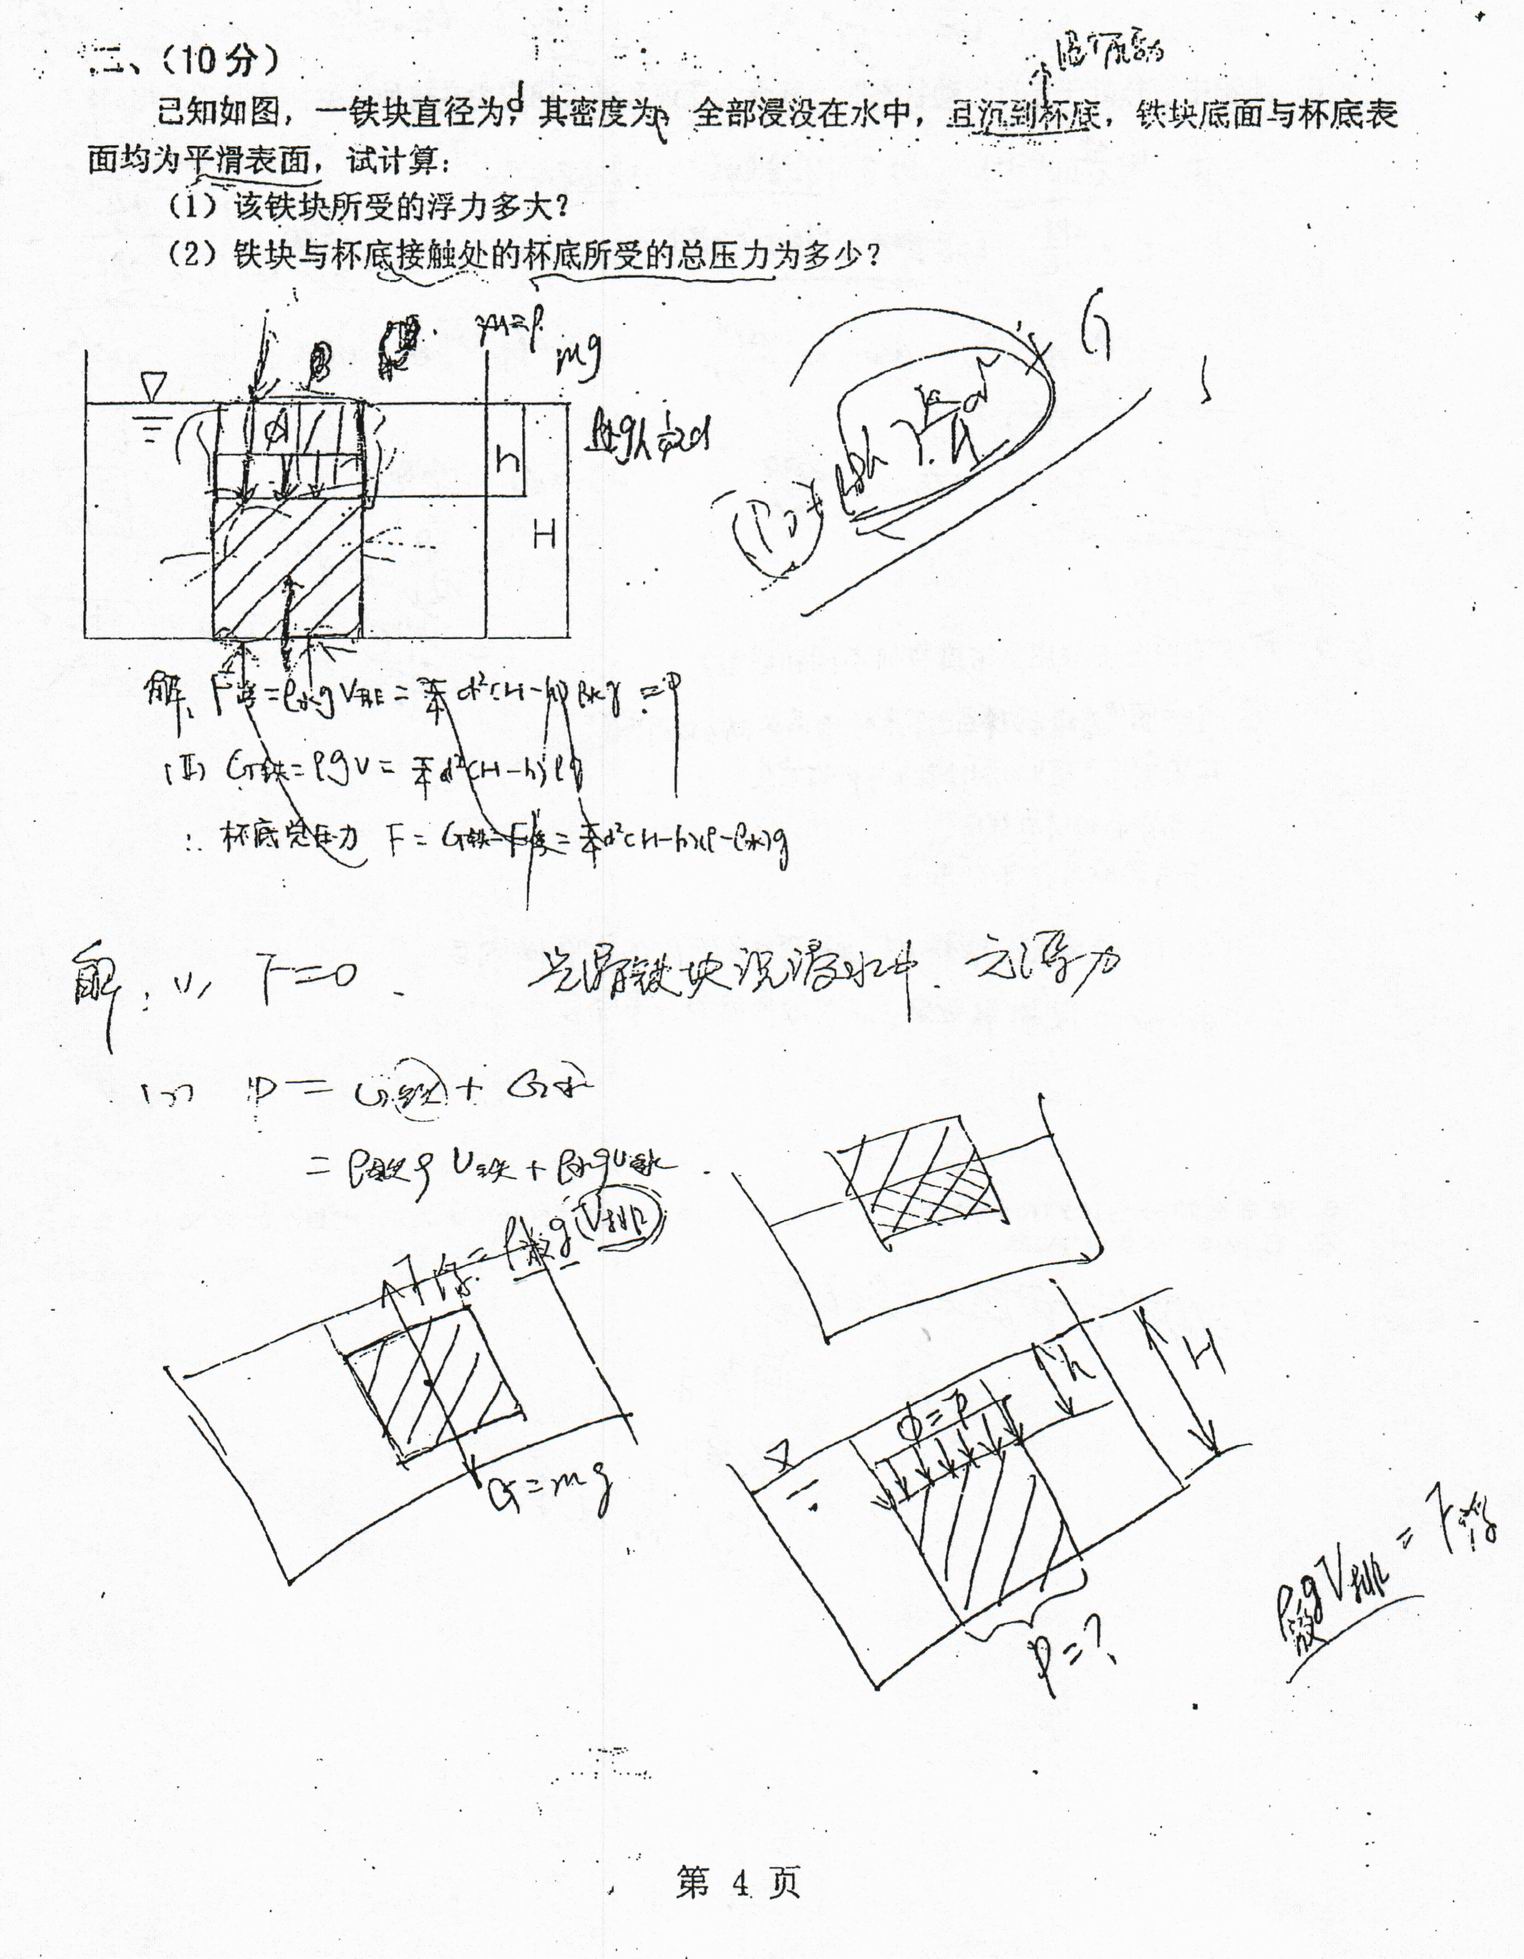 二、（10分）
已知如图，一铁块直径为d，其密度为ρ，全部浸没在水中，且沉到杯底，铁块底面与杯底表
面均为平滑表面，试计算：
（1）该铁块所受的浮力多大？
（2）铁块与杯底接触处的杯底所受的总压力为多少？
m=ρ
mg
h
H
G
解、F浮=ρ水gV排=π/4 d²(H-h)ρ水g
(2) G铁=ρgV=π/4 d²(H-h)ρg
∴ 杯底总压力 F=G铁-F浮=π/4 d²(H-h)(ρ-ρ水)g
解：(1) F=0、 光滑铁块沉浸水中、无浮力
(2) P=G铁+G水
=ρ铁g V铁+ρ水gV水.
F浮=ρ液gV排
G=mg
h
H
P=?
ρ液gV排=F浮
第 4 页